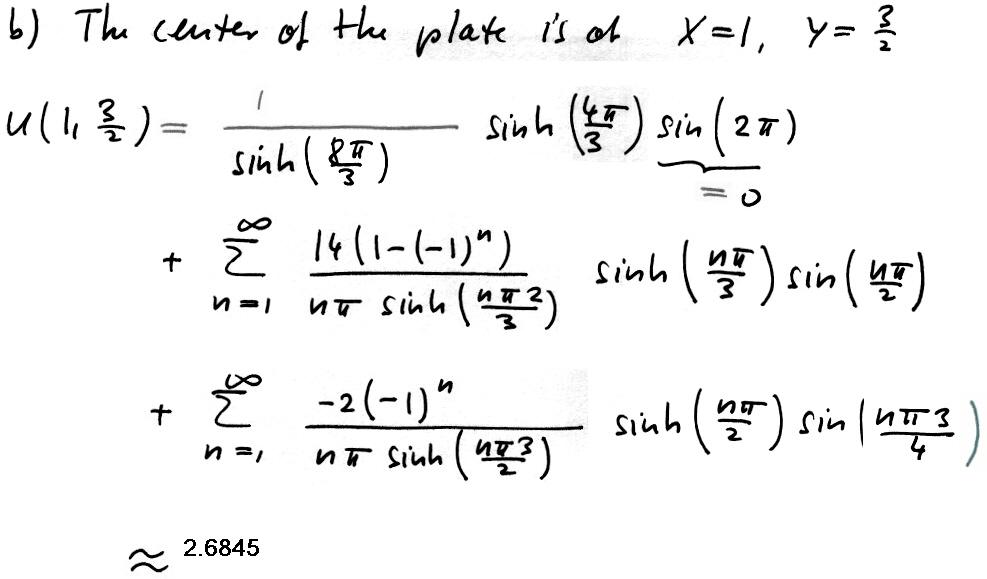 b) The center of the plate is at X=1, Y= 3/2
u(1, 3/2) = 1/sinh(8π/3) sinh(4π/3) sin(2π)
= 0
+ ∞ Σ n=1 14(1-(-1)^n)/nπ sinh(nπ2/3) sinh(nπ/3) sin(nπ/2)
+ ∞ Σ n=1 -2(-1)^n/nπ sinh(nπ3/2) sinh(nπ/2) sin(nπ3/4)
≈ 2.6845